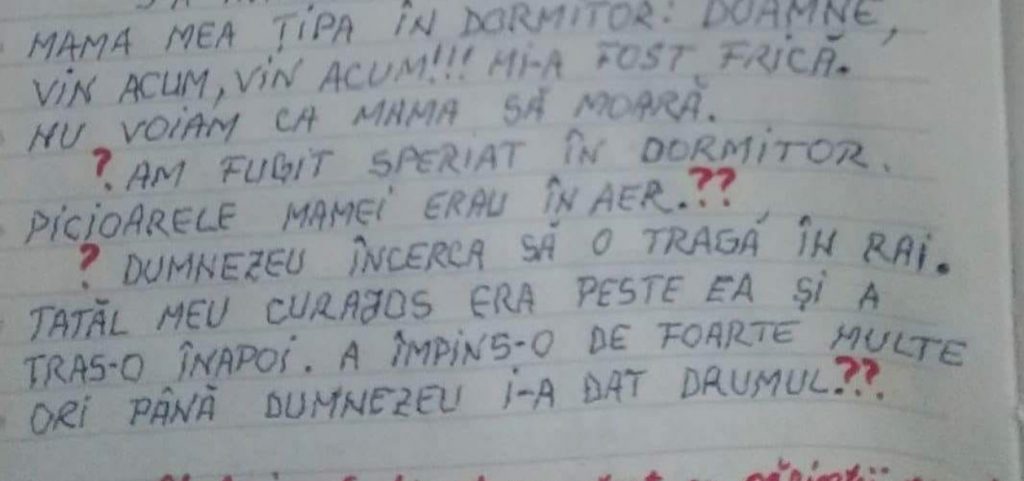 MAMA MEA ȚIPA ÎN DORMITOR: DOAMNE,
VIN ACUM, VIN ACUM!!! MI-A FOST FRICĂ.
NU VOIAM CA MAMA SĂ MOARĂ.
? AM FUGIT SPERIAT ÎN DORMITOR.
PICIOARELE MAMEI ERAU ÎN AER.??
? DUMNEZEU ÎNCERCA SĂ O TRAGĂ ÎN RAI.
TATĂL MEU CURAJOS ERA PESTE EA ȘI A
TRAS-O ÎNAPOI. A ÎMPINS-O DE FOARTE MULTE
ORI PÂNĂ DUMNEZEU I-A DAT DRUMUL.??